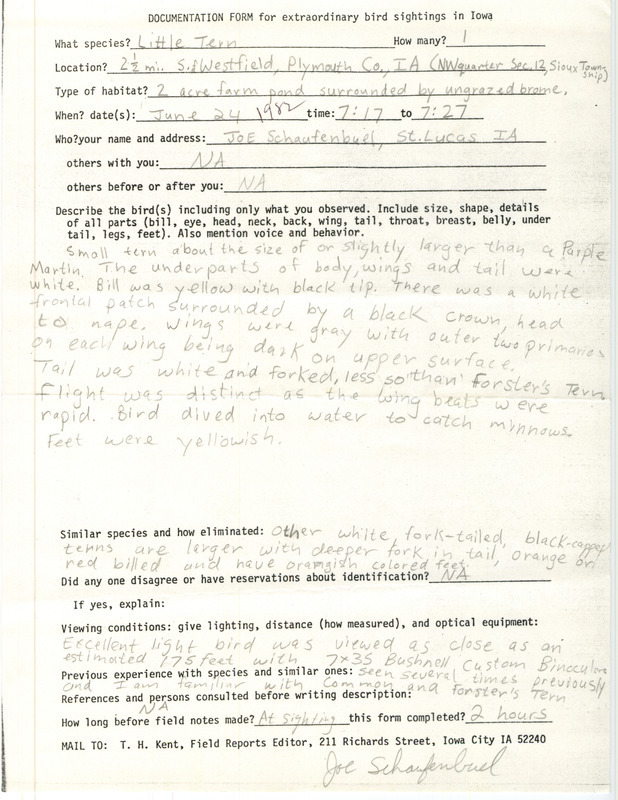 DOCUMENTATION FORM for extraordinary bird sightings in Iowa
What species? Little Tern How many? 1
Location? 2½ mi. S. of Westfield, Plymouth Co., IA (NW quarter Sec. 12, Sioux Township)
Type of habitat? 2 acre farm pond surrounded by ungrazed brome.
When? date(s): June 24 1982 time: 7:17 to 7:27
Who? your name and address: Joe Schaufenbuel, St. Lucas IA
others with you: NA
others before or after you: NA
Describe the bird(s) including only what you observed. Include size, shape, details
of all parts (bill, eye, head, neck, back, wing, tail, throat, breast, belly, under
tail, legs, feet). Also mention voice and behavior.
Small tern about the size of or slightly larger than a Purple
Martin. The underparts of body, wings and tail were
white. Bill was yellow with black tip. There was a white
frontal patch surrounded by a black crown, head
to nape. Wings were gray with outer two primaries
on each wing being dark on upper surface.
Tail was white and forked, less so than Forster's Tern
Flight was distinct as the wing beats were
rapid. Bird dived into water to catch minnows.
Feet were yellowish.
Similar species and how eliminated: Other white, fork-tailed, black-capped
terns are larger with deeper fork in tail, orange or
red billed and have orangish colored feet.
Did any one disagree or have reservations about identification? NA
If yes, explain:
Viewing conditions: give lighting, distance (how measured), and optical equipment:
Excellent light bird was viewed as close as an
estimated 175 feet with 7x35 Bushnell Custom Binoculars
Previous experience with species and similar ones: seen several times previously
and I am familiar with Common and Forster's Tern
References and persons consulted before writing description:
NA
How long before field notes made? At sighting this form completed? 2 hours
MAIL TO: T. H. Kent, Field Reports Editor, 211 Richards Street, Iowa City IA 52240
Joe Schaufenbuel